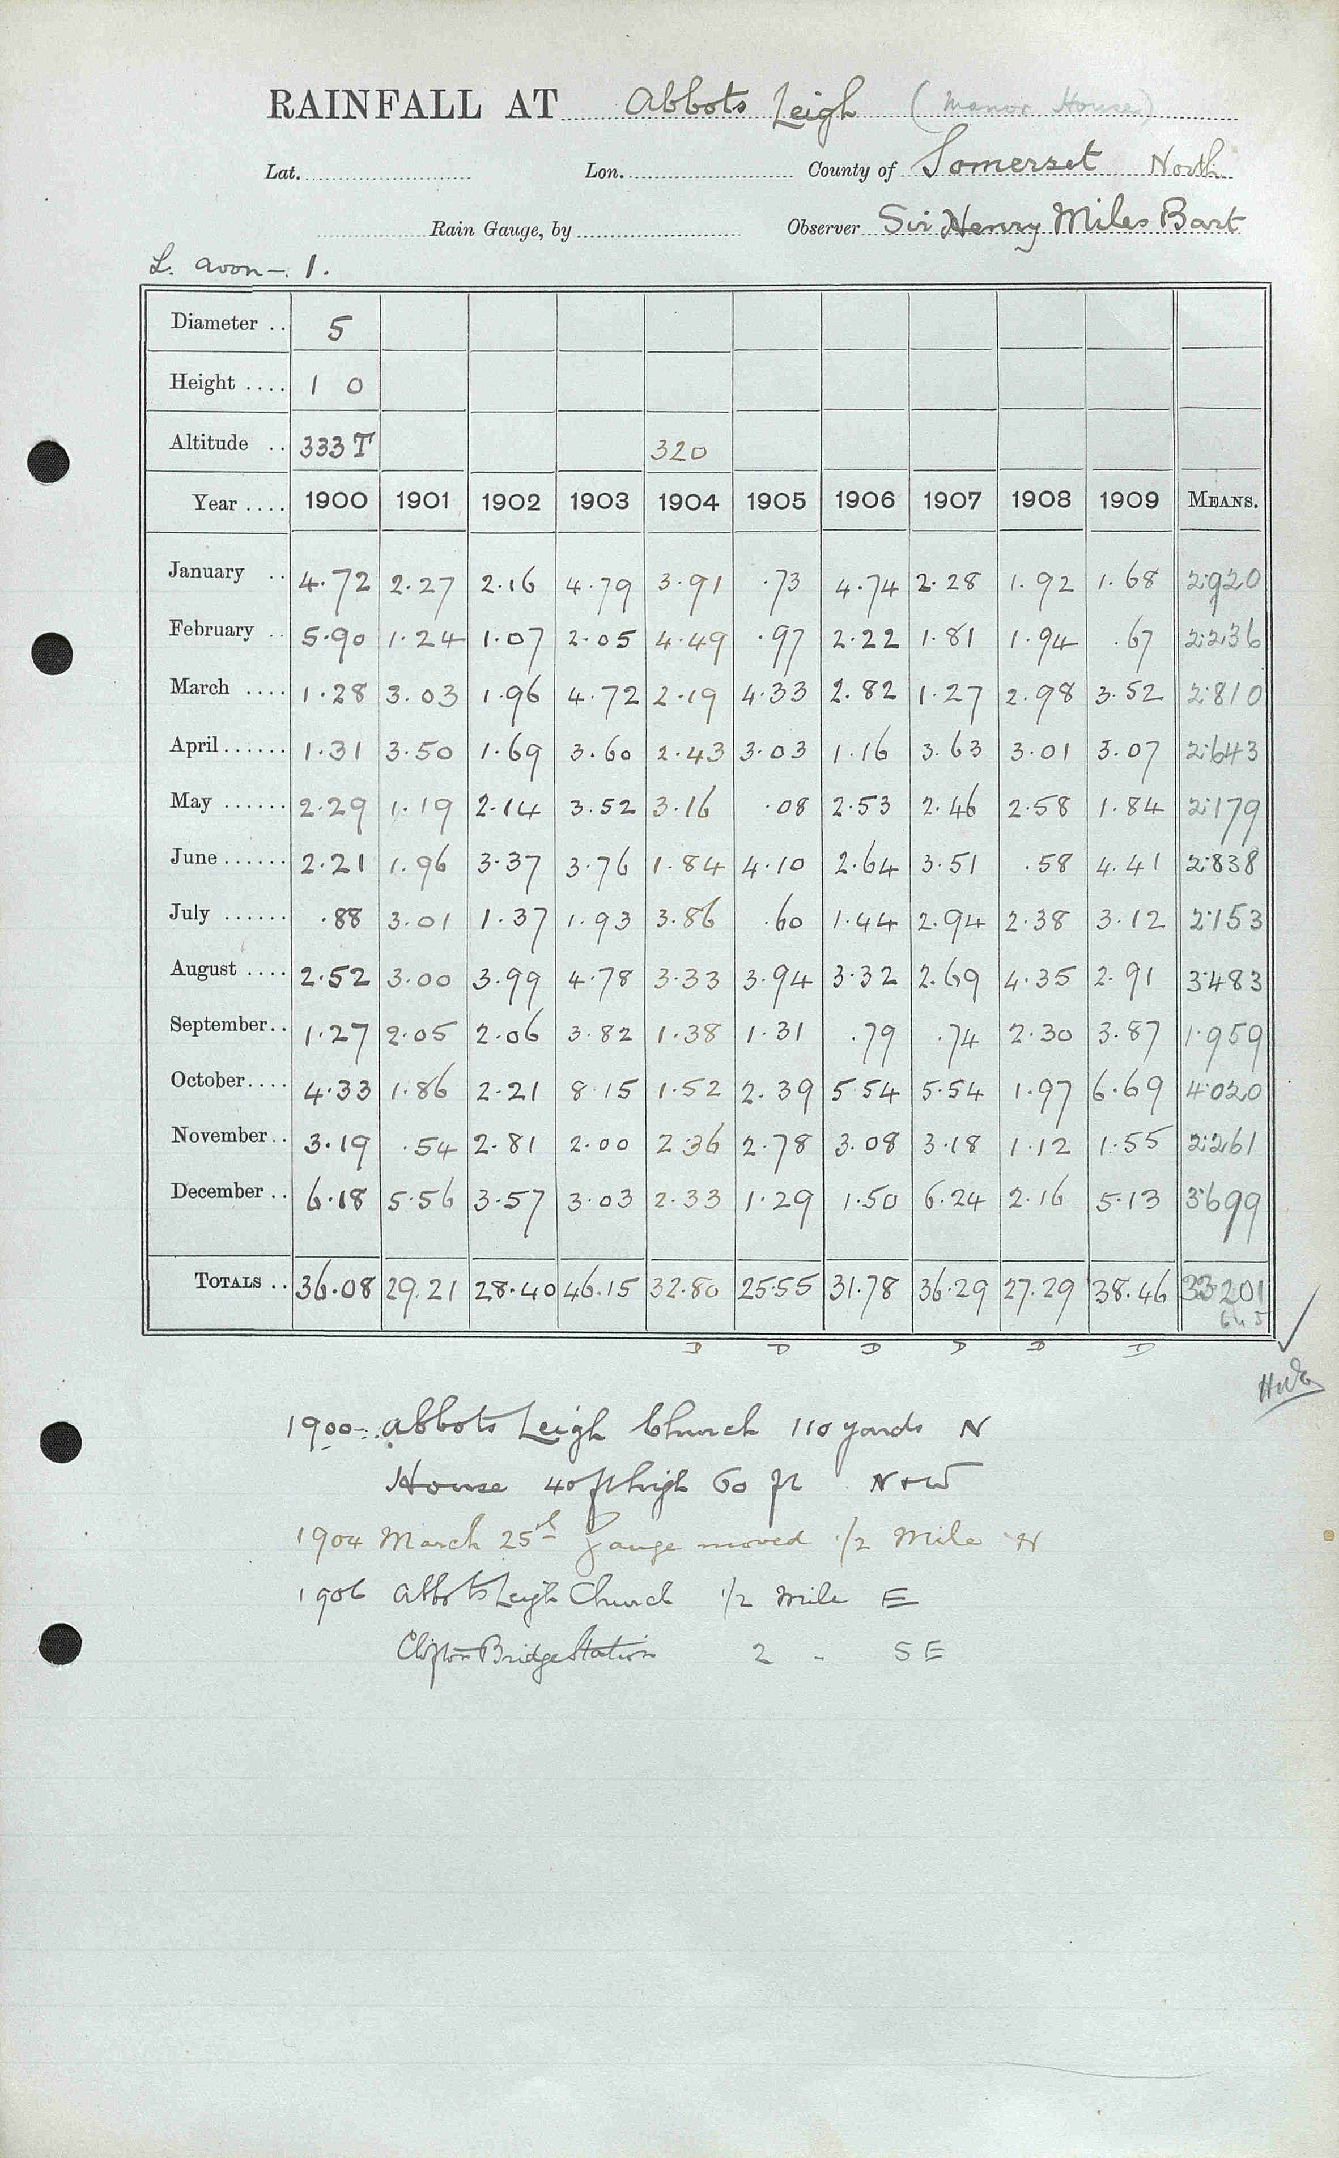 RAINFALL AT Abbots Leigh (Manor House)
Lat. Lon. County of Somerset North
Rain Gauge, by Observer Sir Henry Miles Bart
L. Avon - 1.
Diameter .. 5
Height .... 1 0
Altitude .. 333 T 320
Year .... 1900 1901 1902 1903 1904 1905 1906 1907 1908 1909 MEANS.
January .. 4.72 2.27 2.16 4.79 3.91 .73 4.74 2.28 1.92 1.68 2.920
February .. 5.90 1.24 1.07 2.05 4.49 .97 2.22 1.81 1.94 .67 2.236
March .... 1.28 3.03 1.96 4.72 2.19 4.33 2.82 1.27 2.98 3.52 2.810
April...... 1.31 3.50 1.69 3.60 2.43 3.03 1.16 3.63 3.01 3.07 2.643
May ...... 2.29 1.19 2.14 3.52 3.16 .08 2.53 2.46 2.58 1.84 2.179
June...... 2.21 1.96 3.37 3.76 1.84 4.10 2.64 3.51 .58 4.41 2.838
July ...... .88 3.01 1.37 1.93 3.86 .60 1.44 2.94 2.38 3.12 2.153
August .... 2.52 3.00 3.99 4.78 3.33 3.94 3.32 2.69 4.35 2.91 3.483
September.. 1.27 2.05 2.06 3.82 1.38 1.31 .79 .74 2.30 3.87 1.959
October.... 4.33 1.86 2.21 8.15 1.52 2.39 5.54 5.54 1.97 6.69 4.020
November.. 3.19 .54 2.81 2.00 2.36 2.78 3.08 3.18 1.12 1.55 2.261
December .. 6.18 5.56 3.57 3.03 2.33 1.29 1.50 6.24 2.16 5.13 3.699
TOTALS .. 36.08 29.21 28.40 46.15 32.80 25.55 31.78 36.29 27.29 38.46 33.201
D D D D D D
1900-. Abbots Leigh Church 110 yards N
House 40 ft high 60 ft N+W
1904 March 25th Gauge moved 1/2 Mile N
1906 Abbots Leigh Church 1/2 mile E
Clifton Bridge Station 2 " SE